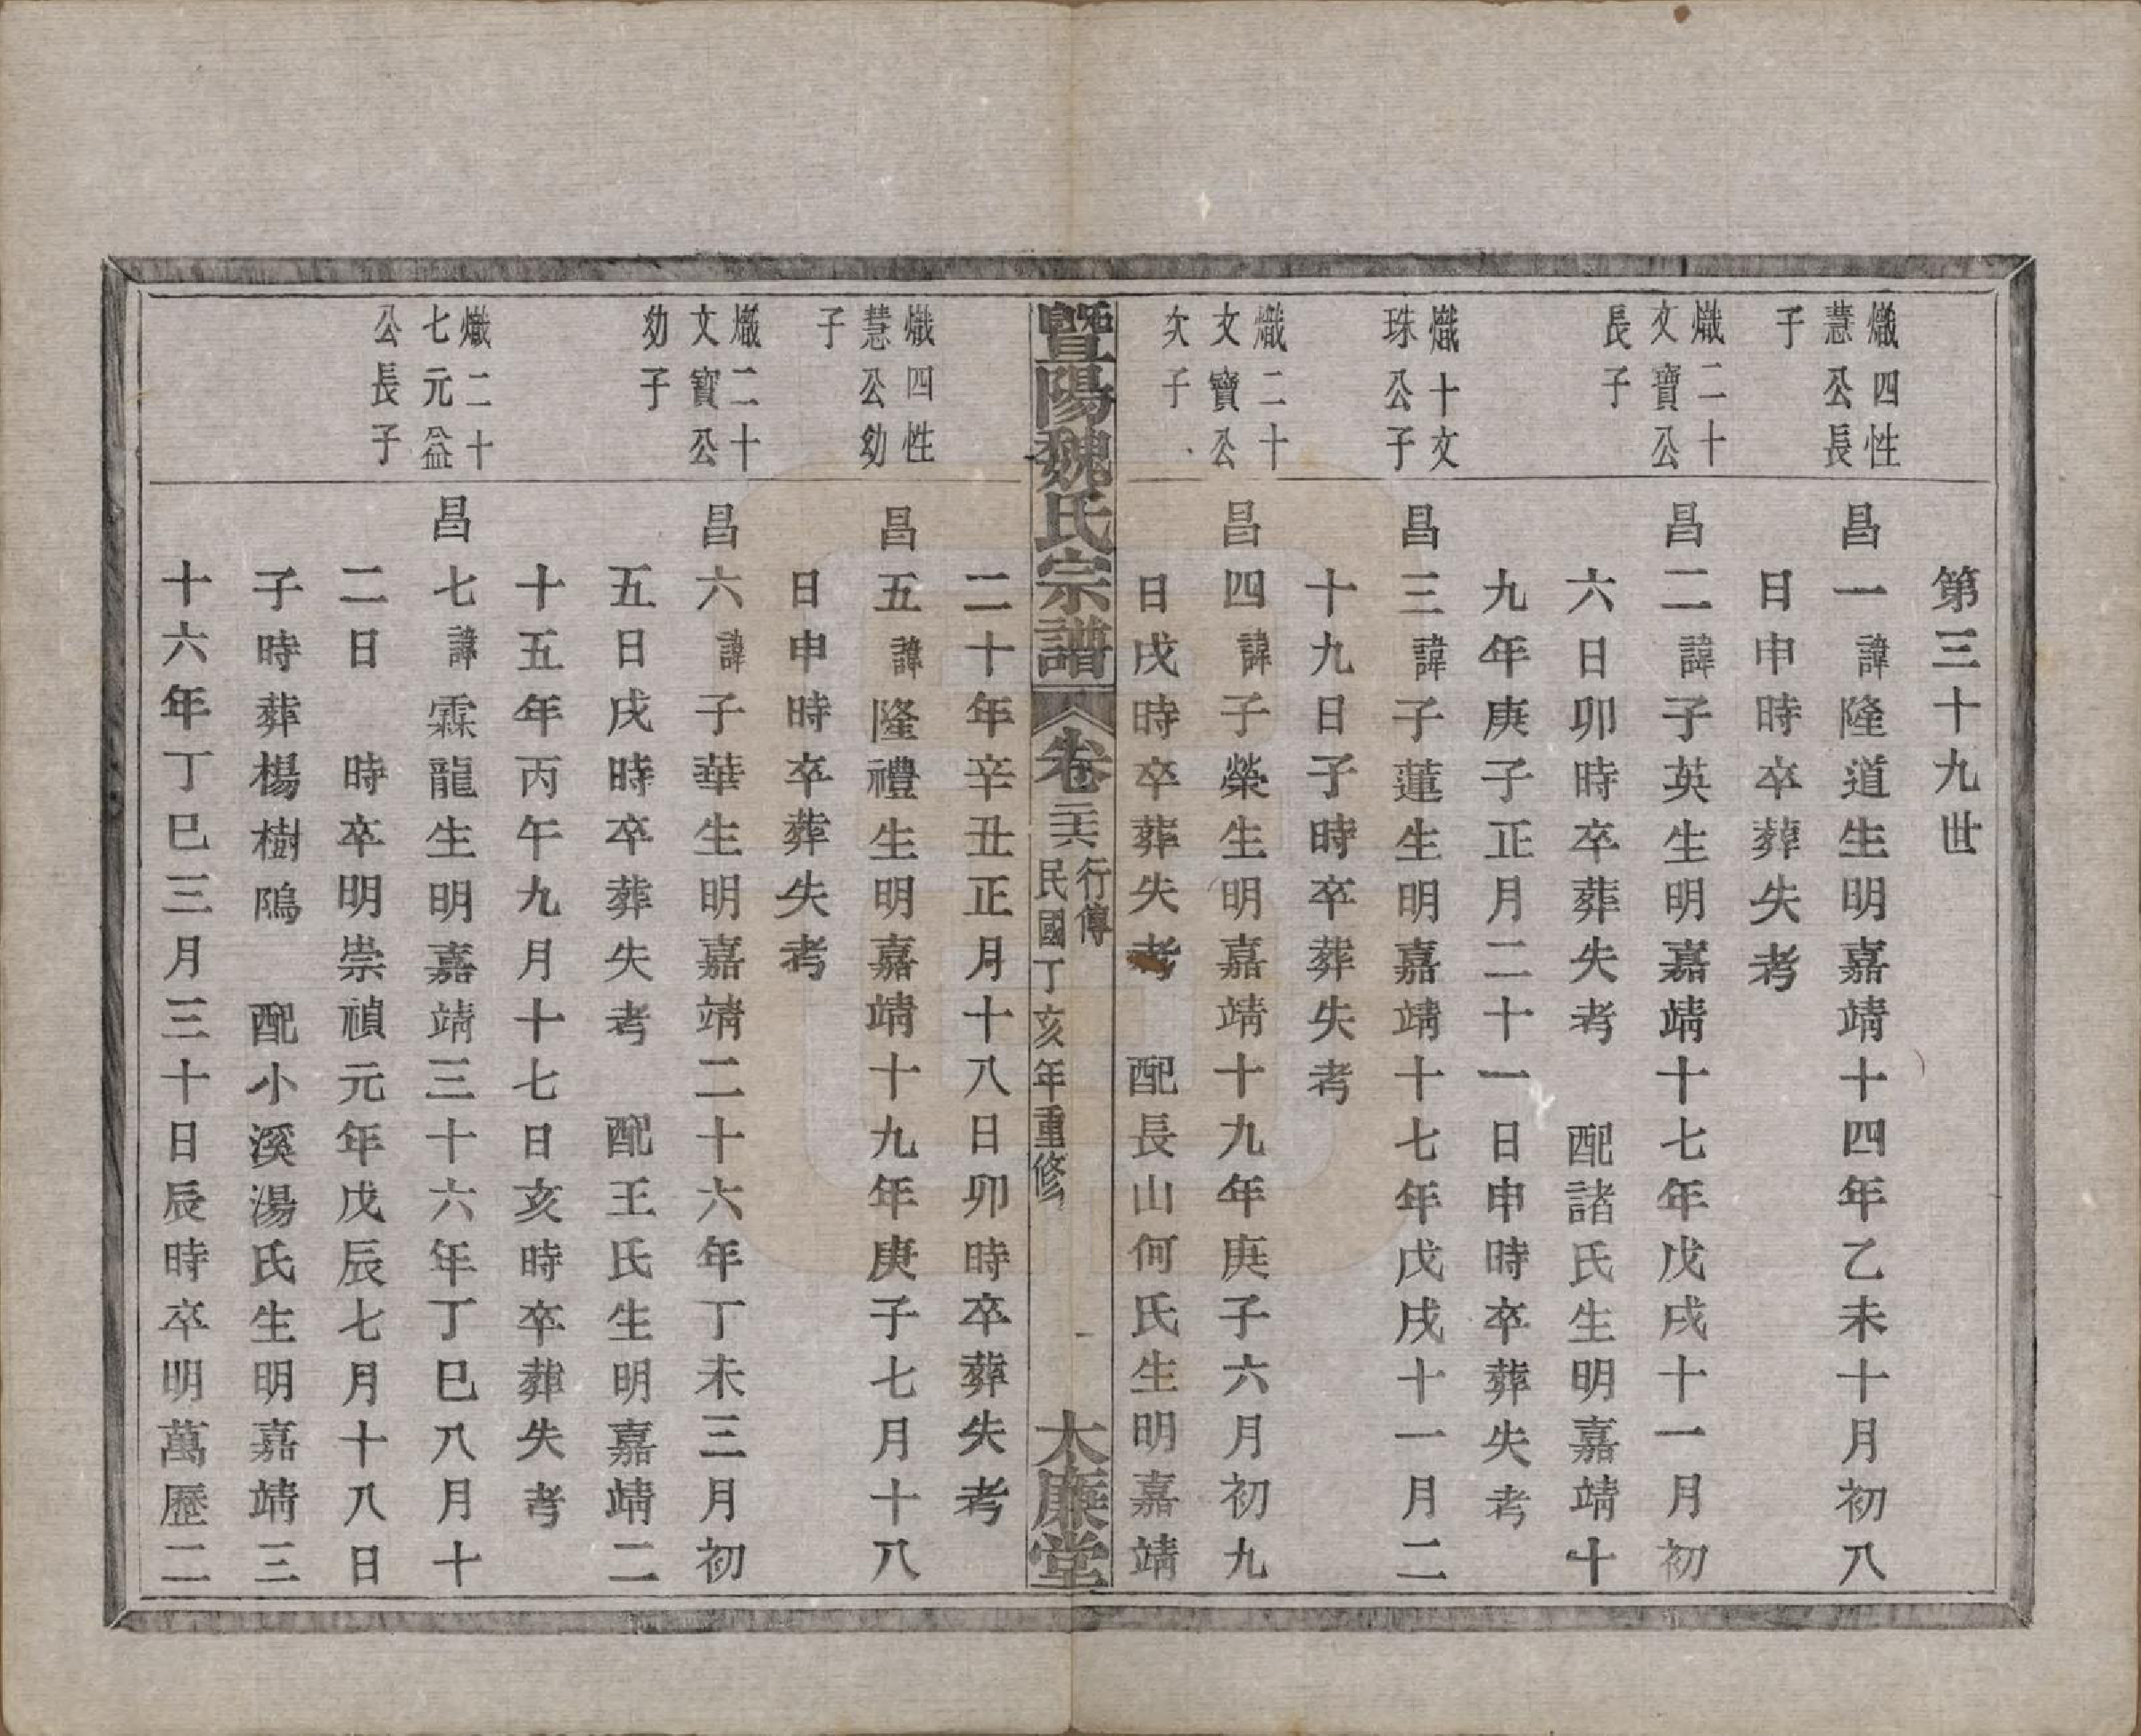 第三十九世
熾四性
慧公長
子
昌一諱隆道生明嘉靖十四年乙未十月初八
日申時卒葬失考
熾二十
文寶公
長子
昌二諱子英生明嘉靖十七年戊戌十一月初
六日卯時卒葬失考 配諸氏生明嘉靖十
九年庚子正月二十一日申時卒葬失考
熾十文
珠公子
昌三諱子蓮生明嘉靖十七年戊戌十一月二
十九日子時卒葬失考
熾二十
文寶公
次子
昌四諱子榮生明嘉靖十九年庚子六月初九
日戌時卒葬失考 配長山何氏生明嘉靖
暨陽魏氏宗譜 卷二六 行傳 民國丁亥年重修 一 大廉堂
二十年辛丑正月十八日卯時卒葬失考
熾四性
慧公幼
子
昌五諱隆禮生明嘉靖十九年庚子七月十八
日申時卒葬失考
熾二十
文寶公
幼子
昌六諱子華生明嘉靖二十六年丁未三月初
五日戌時卒葬失考 配王氏生明嘉靖二
十五年丙午九月十七日亥時卒葬失考
熾二十
七元益
公長子
昌七諱霖龍生明嘉靖三十六年丁巳八月十
二日 時卒明崇禎元年戊辰七月十八日
子時葬楊樹鴪 配小溪湯氏生明嘉靖三
十六年丁巳三月三十日辰時卒明萬歷二